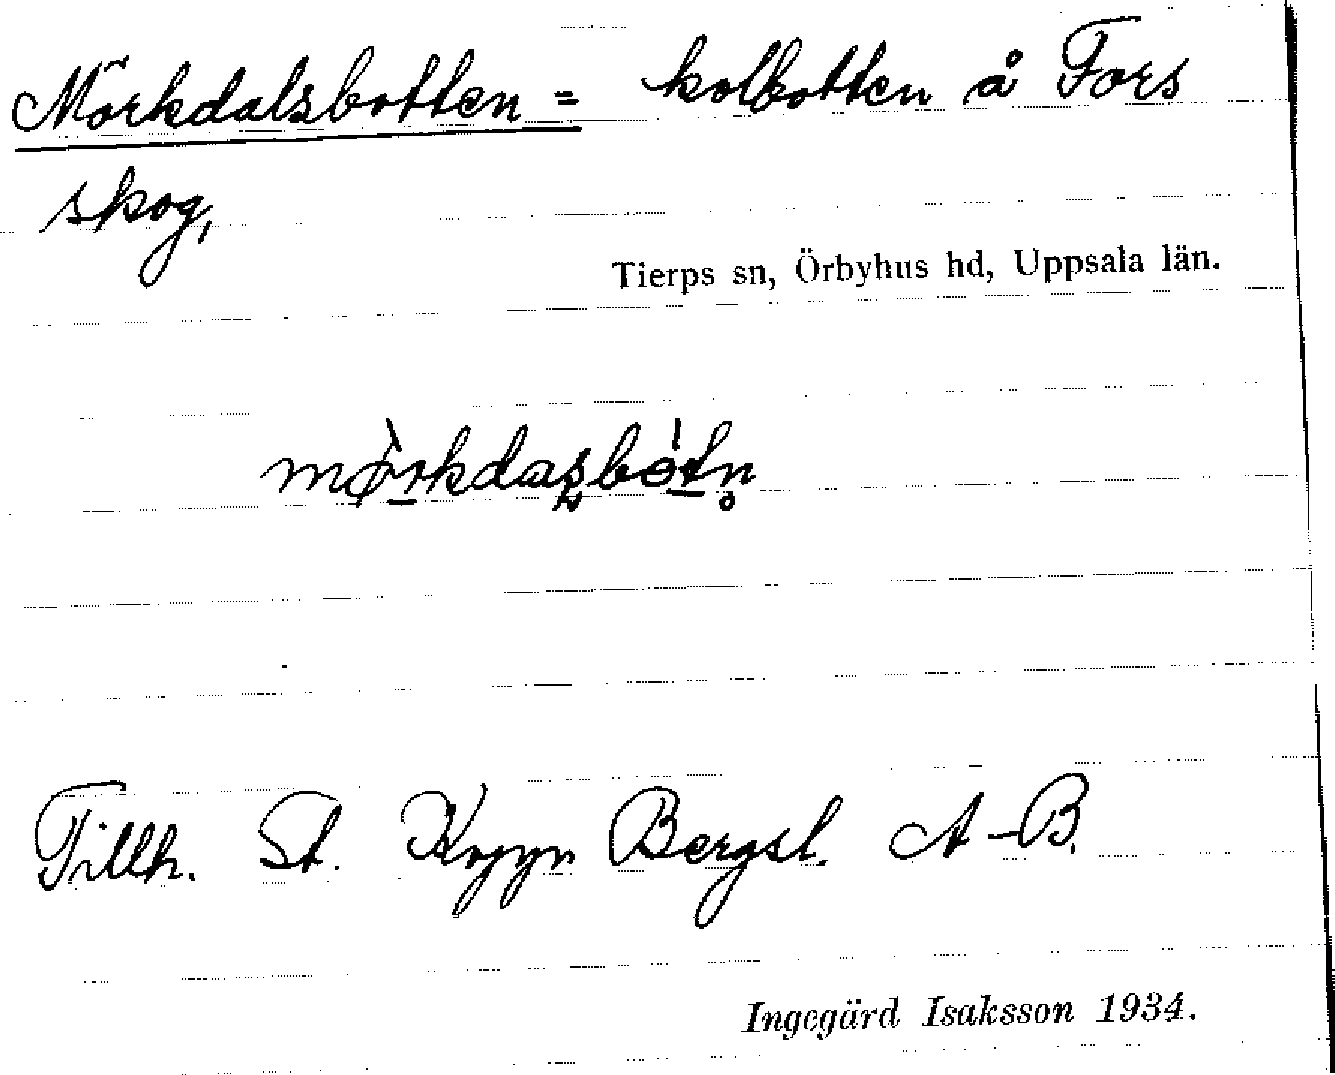 Mörkdalsbotten = kolbotten å Fors
skog,
Tierps sn, Örbyhus hd, Uppsala län.
mø̀rkdasbòtn̥
Tillh. St. Koppr Bergsl. A-B.
Ingegärd Isaksson 1934.